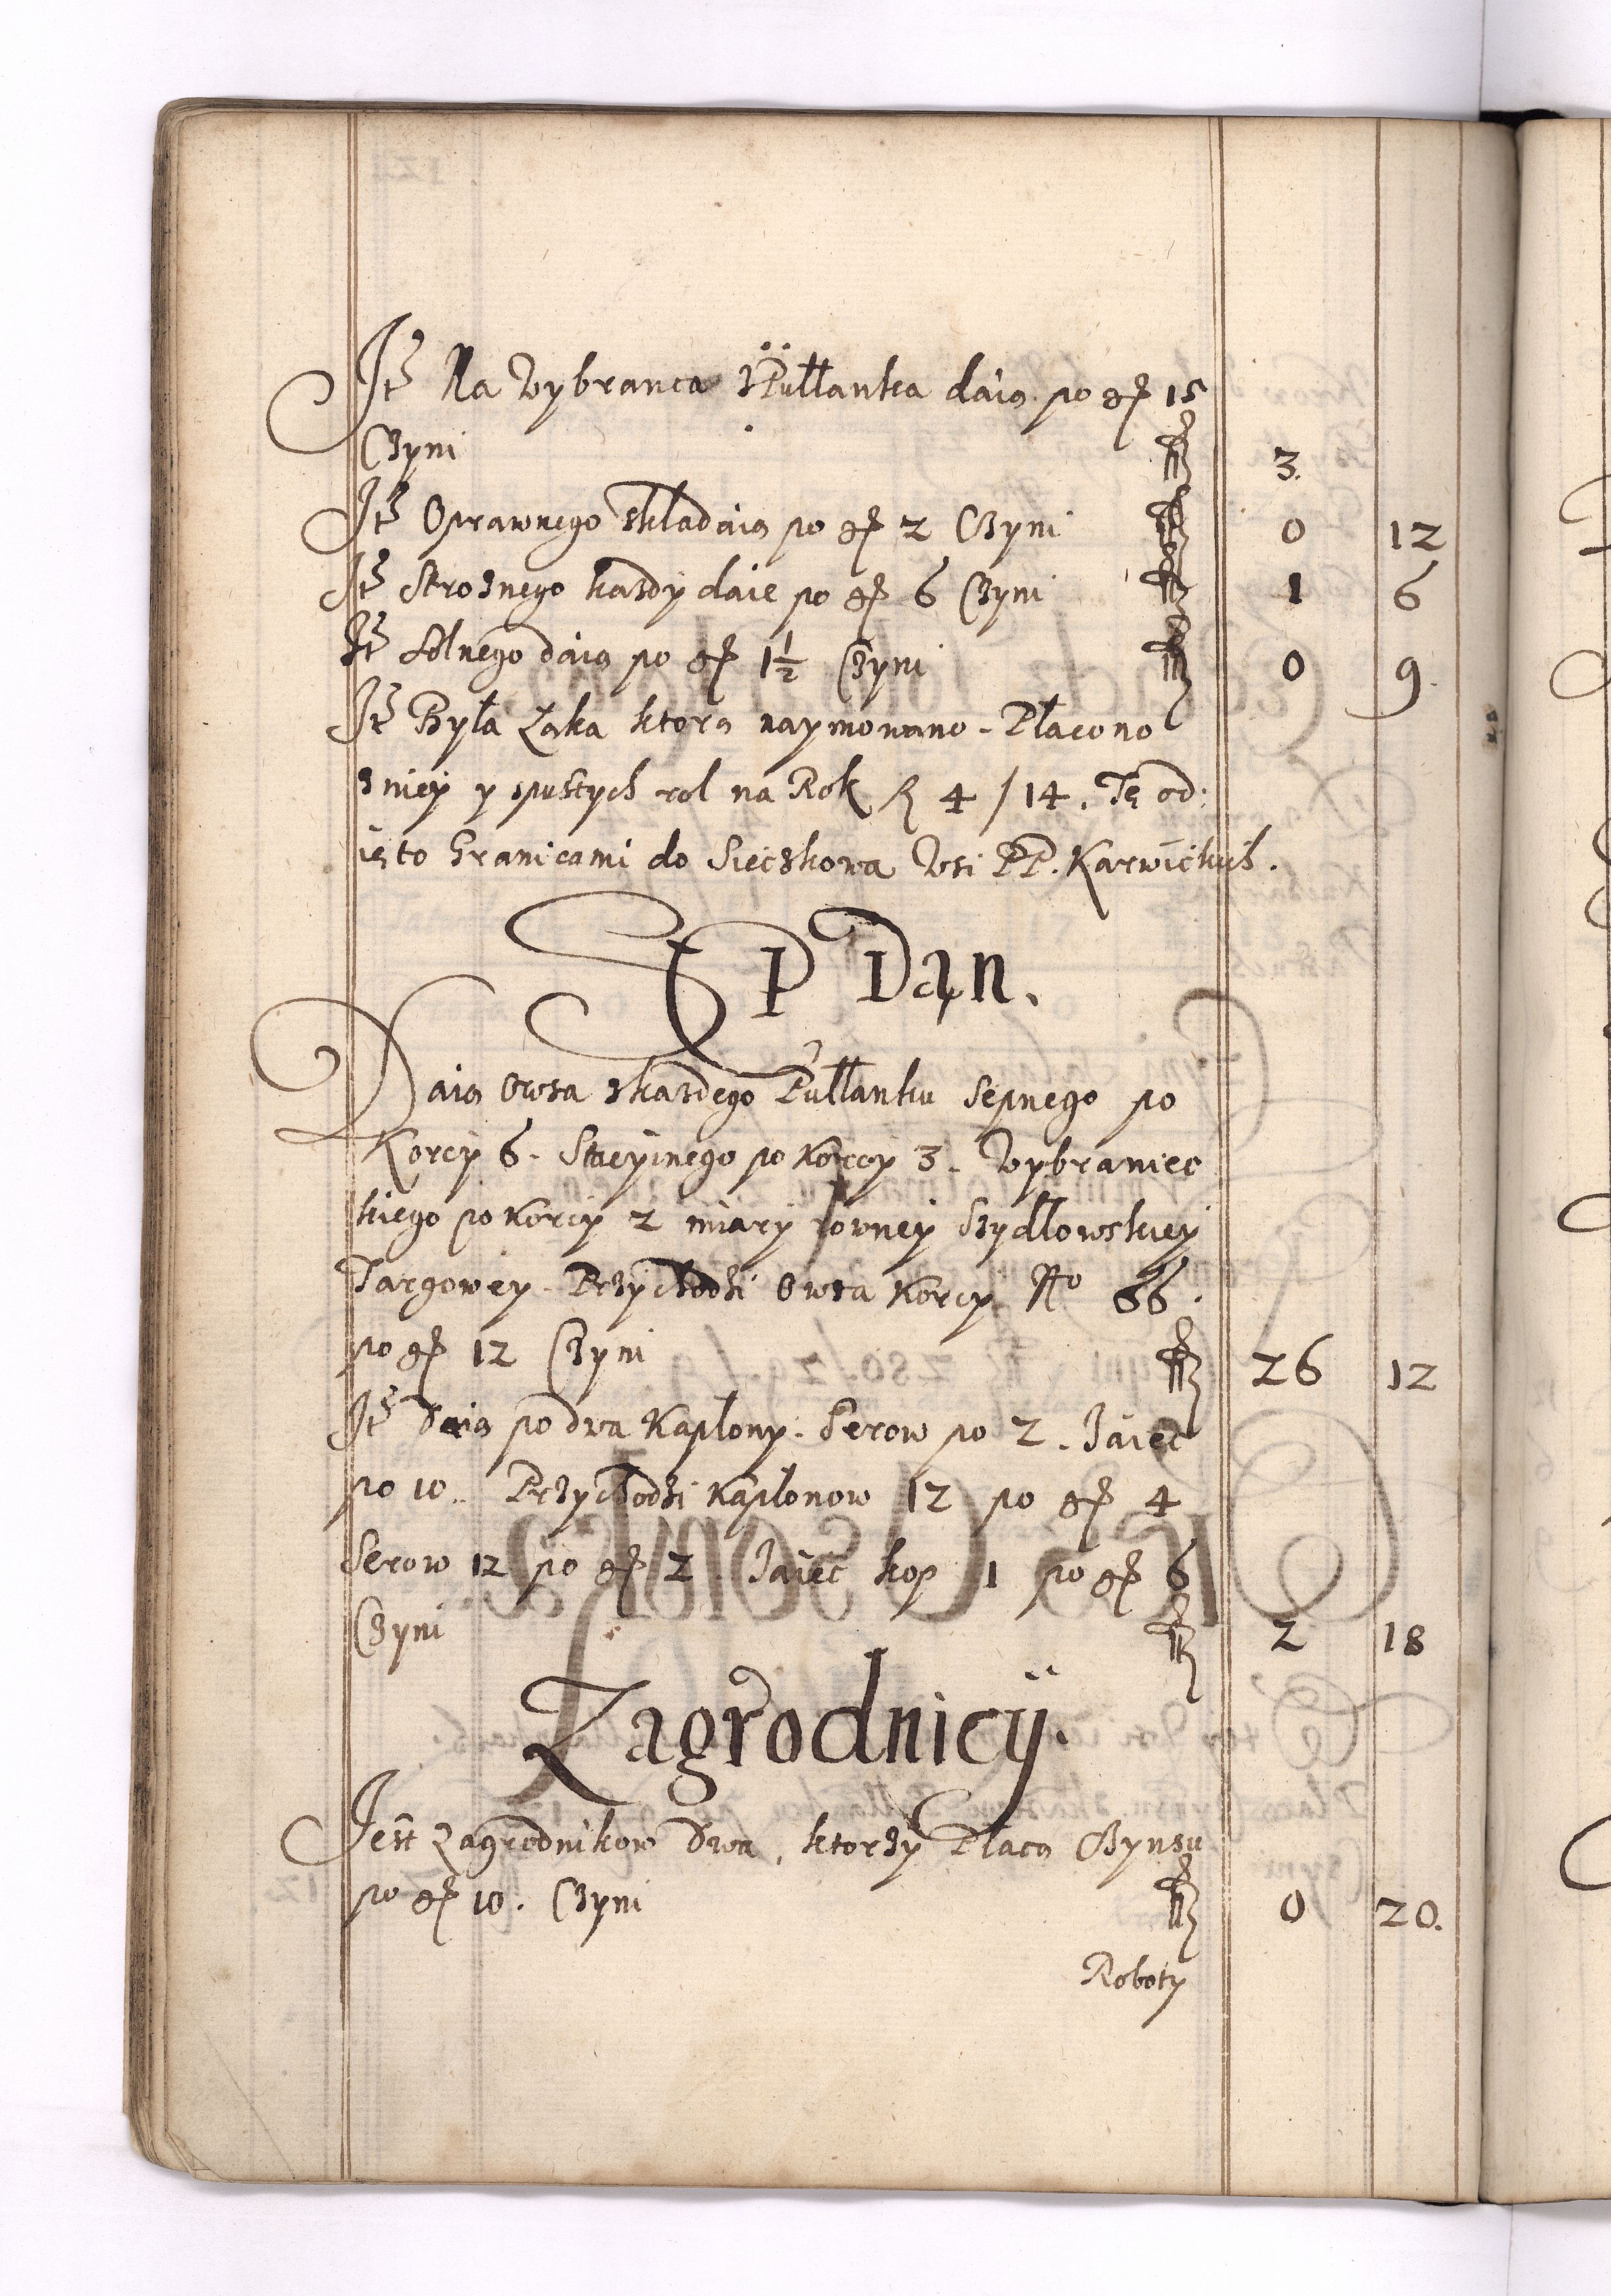 Itē Na Wybranca z Pułłanka daią po gr 15
Czyni fl 3.
Itē Oprawnego składaią po gr 2 Czyni fl 0 12
Itē Strożnego każdy daie po gr 6 Czyni fl 1 6
Itē Solnego daią po gr 1½ Czyni fl 0 9.
Itē Była Łąka ktorą naymowano. Płacono
z niey y z pustych rol na Rok fl 4 / 14. Tę od:
ięto Granicami do Sieczkowa Wsi PP. Karwickich.
SEP Dąn.
Daią Owsa z każdego Pułłanku Sepnego po
Korcy 6. Stacyinego po Korcy 3. Wybraniec
kiego po Korcy 2 miary rowney Szydłowskiey
Targowey. Przychodzi Owsa Korcy No 66.
po gr 12 Czyni fl 26 12
Itē Daią po dwa Kapłony. Serow po 2. Jaiec
po 10. Przychodzi Kapłonow 12 po gr 4
Serow 12 po gr 2. Jaiec kop 1 po gr 6
Czyni fl 2 18
Zagrodnicy.
Jest Zagrodnikow Dwa, ktorzy Płacą Czynsu
po gr 10. Czyni fl 0 20.
Roboty